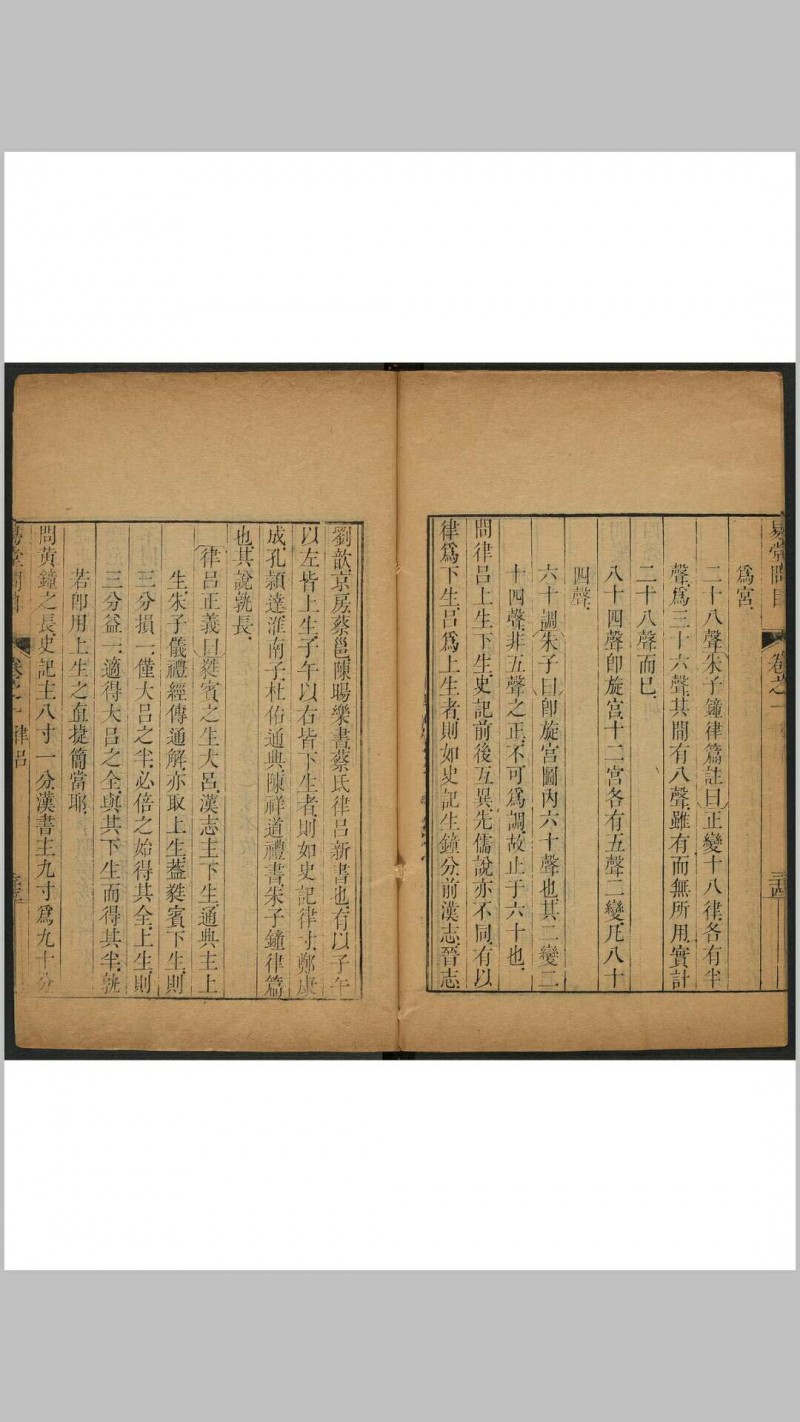 易堂問目 卷之一 三四
爲宮、
二十八聲、朱子鐘律篇註曰、正變十八律、各有半
聲、爲三十六聲、其間有八聲、雖有而無所用、實計
二十八聲而已、
八十四聲卽旋宮十二宮各有五聲二變、凡八十
四聲、
六十調、朱子曰、卽旋宮圖內六十聲也、其二變二
十四聲、非五聲之正、不可爲調、故止于六十也、
問律呂上生下生、史記前後互異、先儒說亦不同、有以
律爲下生、呂爲上生者、則如史記生鐘分、前漢志、晉志、
劉歆、京房、蔡邕、陳暘樂書、蔡氏律呂新書也、有以子午
以左皆上生、子午以右皆下生者、則如史記律寸、鄭康
成、孔穎達、淮南子、杜佑通典、陳祥道禮書、朱子鐘律篇
也、其說孰長、
律呂正義曰、蕤賓之生大呂、漢志主下生、通典主上
生、朱子儀禮經傳通解、亦取上生、蓋蕤賓下生、則
三分損一、僅大呂之半、必倍之始得其全、上生、則
三分益一、適得大呂之全、與其下生而得其半、孰
若卽用上生之直捷簡當耶、
問黃鐘之長、史記主八寸一分、漢書主九寸爲九十分
易堂問目 卷之一 律呂